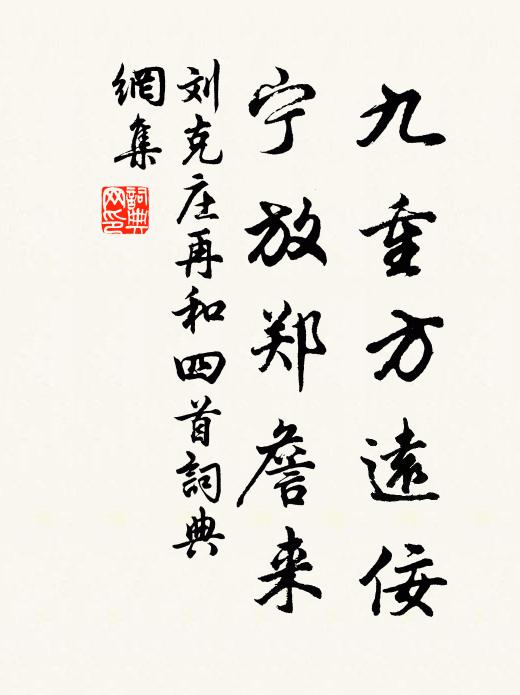 九重方遠佞
宁放郑詹来
刘克庄再和四首詞典
網集
詞典
网印